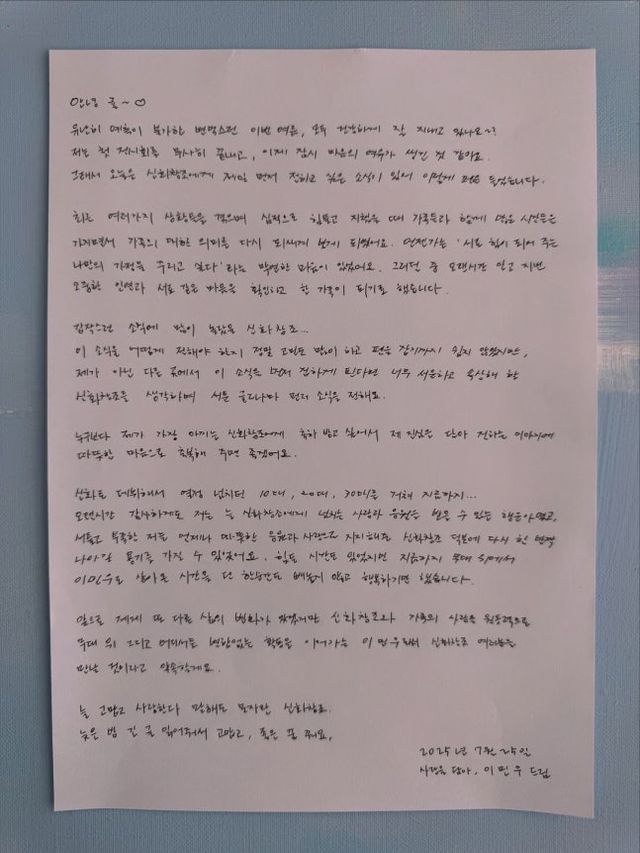 안녕 귤~♡
유난히 예측이 불가한 변덕스런 이번 여름, 모두 건강하게 잘 지내고 있나요~?
저는 첫 전시회를 무사히 끝내고, 이제 잠시 마음의 여유가 생긴 것 같아요.
그래서 오늘은 신화창조에게 제일 먼저 전하고 싶은 소식이 있어 이렇게 펜을 들었습니다.
최근 여러가지 상황들을 겪으며 심적으로 힘들고 지쳤을 때 가족들과 함께 많은 시간들을
가지면서 가족의 대한 의미를 다시 되새게 번게 되었어요. 언젠가는 '서로 힘이 되어 주는
나만의 가정을 꾸리고 싶다'라는 막연한 마음이 있었어요. 그러던 중 오랜시간 알고 지낸
소중한 인연과 서로 같은 마음을 확인하고 한 가족이 되기로 했습니다.
갑작스런 소식에 많이 놀랐을 신화창조...
이 소식을 어떻게 전해야 하지 정말 고민도 많이 하고 펜을 잡기까지 쉽지 않았지만,
제가 아닌 다른 곳에서 이 소식을 먼저 전하게 된다면 너무 서운하고 속상해 할
신화창조를 생각하며 서툰 글로나마 먼저 소식을 전해요.
누구보다 제가 가장 아끼는 신화창조에게 축하 받고 싶어서 제 진심을 담아 전하는 이야기에
따뜻한 마음으로 축복해 주면 좋겠어요.
신화로 데뷔해서 열정 넘치던 10대, 20대, 30대를 거쳐 지금까지...
오랜시간 감사하게도 저는 늘 신화창조에게 넘치는 사랑과 응원을 받을 수 있는 행운아였고,
서툴고 부족한 저를 언제나 따뜻한 응원과 사랑으로 지지해준 신화창조 덕분에 다시 한 번 더
나아갈 용기를 가질 수 있었어요. 힘든 시간도 있었지만 지금까지 무대 위에서
이민우로 살아온 시간을 단 한순간도 빼놓지 않고 행복하기만 했습니다.
앞으로 제게 또 다른 삶의 변화가 있겠지만 신화창조와 가족의 사랑을 원동력으로
무대 위 그리고 어디서든 변함없는 활동을 이어가는 이민우로써 신화창조 여러분을
만날 것이라고 약속할게요.
늘 고맙고 사랑한다 말해도 모자란 신화창조.
늦은 밤 긴 글 읽어줘서 고맙고, 좋은 꿈 꿔요.
2025년 7월 25일
사랑을 담아, 이민우 드림